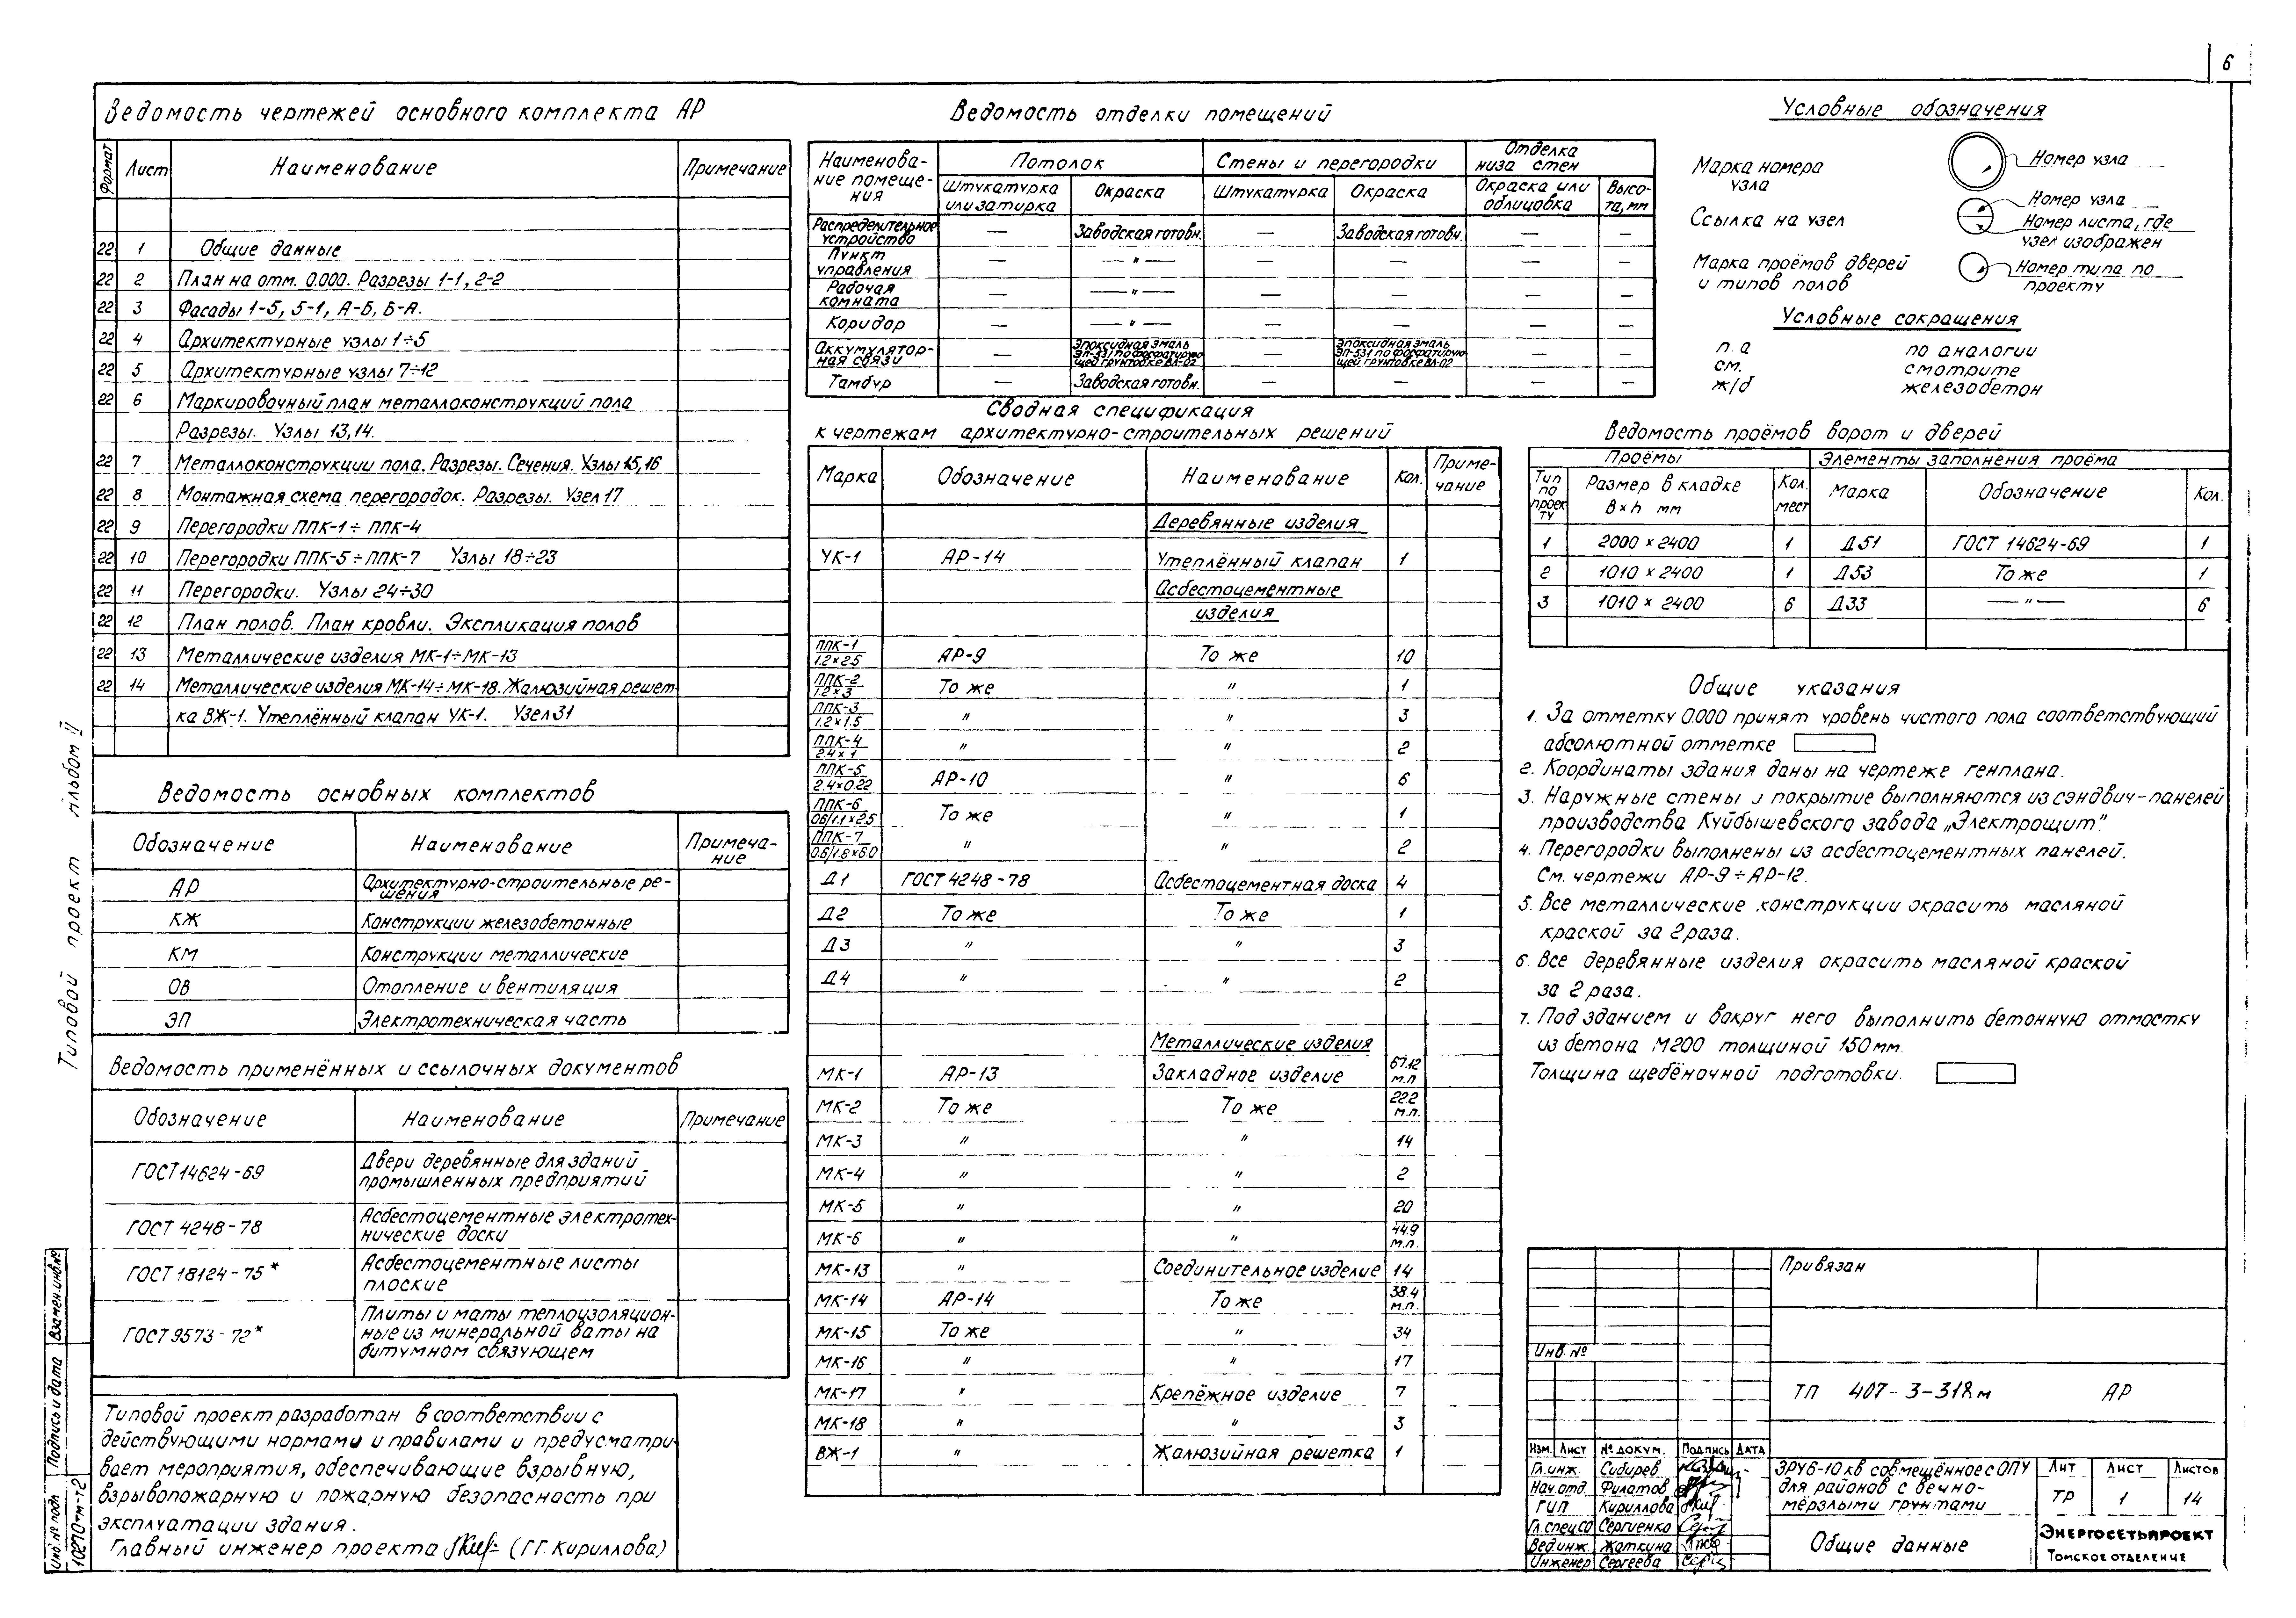 6
Ведомость чертежей основного комплекта АР
Формат Лист Наименование Примечание
22 1 Общие данные
22 2 План на отм. 0.000. Разрезы 1-1, 2-2
22 3 Фасады 1-5, 5-1, А-Б, Б-А.
22 4 Архитектурные узлы 1÷5
22 5 Архитектурные узлы 7÷12
22 6 Маркировочный план металлоконструкций пола
Разрезы. Узлы 13,14.
22 7 Металлоконструкции пола. Разрезы. Сечения. Узлы 15,16
22 8 Монтажная схема перегородок. Разрезы. Узел 17
22 9 Перегородки ППК-1 ÷ ППК-4
22 10 Перегородки ППК-5 ÷ ППК-7 Узлы 18÷23
22 11 Перегородки. Узлы 24÷30
22 12 План полов. План кровли. Экспликация полов
22 13 Металлические изделия МК-1÷МК-13
22 14 Металлические изделия МК-14÷МК-18. Жалюзийная решет
ка ВЖ-1. Утеплённый клапан УК-1. Узел 31
Ведомость основных комплектов
Обозначение Наименование Примеча-
ние
АР Архитектурно-строительные ре-
шения
КЖ Конструкции железобетонные
КМ Конструкции металлические
ОВ Отопление и вентиляция
ЭП Электротехническая часть
Ведомость применённых и ссылочных документов
Обозначение Наименование Примечание
ГОСТ 14624-69 Двери деревянные для зданий
промышленных предприятий
ГОСТ 4248-78 Асбестоцементные электротех-
нические доски
ГОСТ 18124-75* Асбестоцементные листы
плоские
ГОСТ 9573-72* Плиты и маты теплоизоляцион-
ные из минеральной ваты на
битумном связующем
Типовой проект разработан в соответствии с
действующими нормами и правилами и предусматри
вает мероприятия, обеспечивающие взрывную,
взрывопожарную и пожарную безопасность при
эксплуатации здания.
Главный инженер проекта (Г.Г. Кириллова)
Типовой проект Альбом II
Инв.№ подл Подпись и дата Взамен.инв.№
10270тм-т2
Ведомость отделки помещений
Наименова-
ние помеще-
ния
Потолок Стены и перегородки Отделка
низа стен
Штукатурка
или затирка Окраска Штукатурка Окраска Окраска или
облицовка Высо-
та, мм
Распределительное
устройство — Заводская готовн. — Заводская готовн. — —
Пункт
управления — —"— — — — —
Рабочая
комната — —"— — — — —
Коридор — —"— — — — —
Аккумулятор-
ная связи — Эпоксидная эмаль
ЭП-531 по фосфатирую
щей грунтовке ВЛ-02 — Эпоксидная эмаль
ЭП-531 по фосфатирую
щей грунтовке ВЛ-02 — —
Тамбур — Заводская готовн. — — — —
Сводная спецификация
к чертежам архитектурно-строительных решений
Марка Обозначение Наименование Кол. Приме-
чание
Деревянные изделия
УК-1 АР-14 Утеплённый клапан 1
Асбестоцементные
изделия
ППК-1
1.2×2.5 АР-9 То же 10
ППК-2
1.2×3 То же " 1
ППК-3
1.2×1.5 " " 3
ППК-4
2.4×1 " " 2
ППК-5
2.4×0.22 АР-10 " 6
ППК-6
0.6/1.1×2.5 То же " 1
ППК-7
0.6/1.8×6.0 " " 2
Д1 ГОСТ 4248-78 Асбестоцементная доска 4
Д2 То же То же 1
Д3 " " 3
Д4 " " 2
Металлические изделия
МК-1 АР-13 Закладное изделие 67.12
м.п
МК-2 То же То же 22.2
м.п.
МК-3 " " 14
МК-4 " " 2
МК-5 " " 20
МК-6 " " 44.9
м.п.
МК-13 " Соединительное изделие 14
МК-14 АР-14 То же 38.4
м.п.
МК-15 То же " 34
МК-16 " " 17
МК-17 " Крепёжное изделие 7
МК-18 " " 3
ВЖ-1 " Жалюзийная решетка 1
Условные обозначения
Марка номера
узла
Номер узла
Ссылка на узел
Номер узла
Номер листа, где
узел изображен
Марка проёмов дверей
и типов полов
Номер типа по
проекту
Условные сокращения
п. а по аналогии
см. смотрите
ж/б железобетон
Ведомость проёмов ворот и дверей
Проёмы Элементы заполнения проёма
Тип
по
проек
ту
Размер в кладке
В×h мм
Кол.
мест
Марка Обозначение Кол.
1 2000 × 2400 1 Д51 ГОСТ 14624-69 1
2 1010 × 2400 1 Д53 То же 1
3 1010 × 2400 6 Д33 —"— 6
Общие указания
1. За отметку 0.000 принят уровень чистого пола соответствующий
абсолютной отметке
2. Координаты здания даны на чертеже генплана.
3. Наружные стены и покрытие выполняются из сэндвич-панелей
производства Куйбышевского завода „Электрощит".
4. Перегородки выполнены из асбестоцементных панелей.
См. чертежи АР-9÷АР-12.
5. Все металлические конструкции окрасить масляной
краской за 2 раза.
6. Все деревянные изделия окрасить масляной краской
за 2 раза.
7. Под зданием и вокруг него выполнить бетонную отмостку
из бетона М200 толщиной 150 мм.
Толщина щебёночной подготовки.
Привязан
Инв. №
ТП 407-3-318м АР
Изм. Лист № докум. Подпись Дата
Гл.инж. Сибирев
Нач.отд. Филатов
ГИП Кириллова
Гл.спец.СО Сергиенко
Вед.инж. Жаткина
Инженер Сергеева
ЗРУ 6-10 кв совмещённое с ОПУ
для районов с вечно-
мёрзлыми грунтами
Лит Лист Листов
ТР 1 14
Общие данные
Энергосетьпроект
Томское отделение